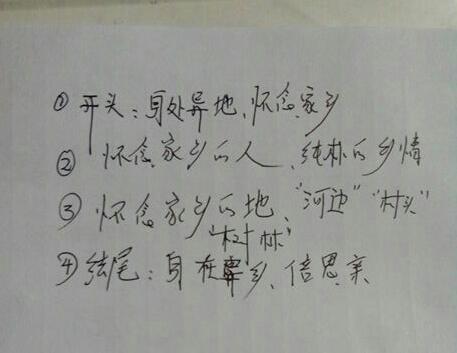 ① 开头：身处异地、怀念家乡
② 怀念家乡的人、纯朴的乡情
③ 怀念家乡的地、“河边”“村头”
“树林”
④ 结尾：身在异乡、倍思亲